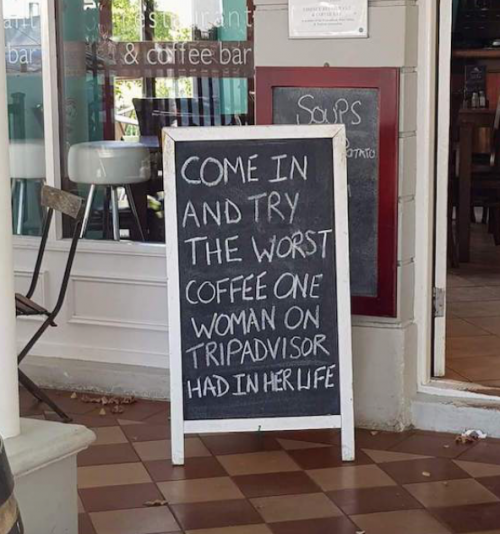 restaurant
bar & coffee bar
SOUPS
POTATO
COME IN
AND TRY
THE WORST
COFFEE ONE
WOMAN ON
TRIPADVISOR
HAD IN HER LIFE